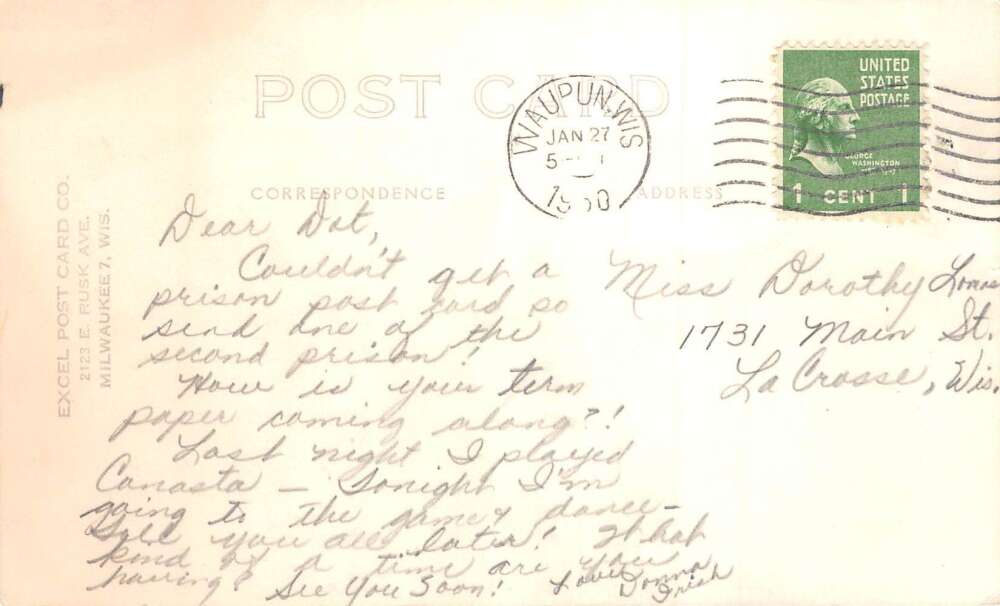 POST CARD
CORRESPONDENCE
ADDRESS
EXCEL POST CARD CO.
2123 E. RUSK AVE.
MILWAUKEE 7, WIS.
WAUPUN, WIS
JAN 27
5
1950
UNITED
STATES
POSTAGE
GEORGE
WASHINGTON
1 CENT 1
Dear Dot,
Couldn't get a
prison post card so
send one of the
second prison!
How is your term
paper coming along?!
Last night I played
Canasta — Tonight I'm
going to the game & dance —
Tell you all later! What
kind of a time are you
having? See you soon!
Love
Donna
Trish
Miss Dorothy
1731 Main St.
La Crosse, Wis.